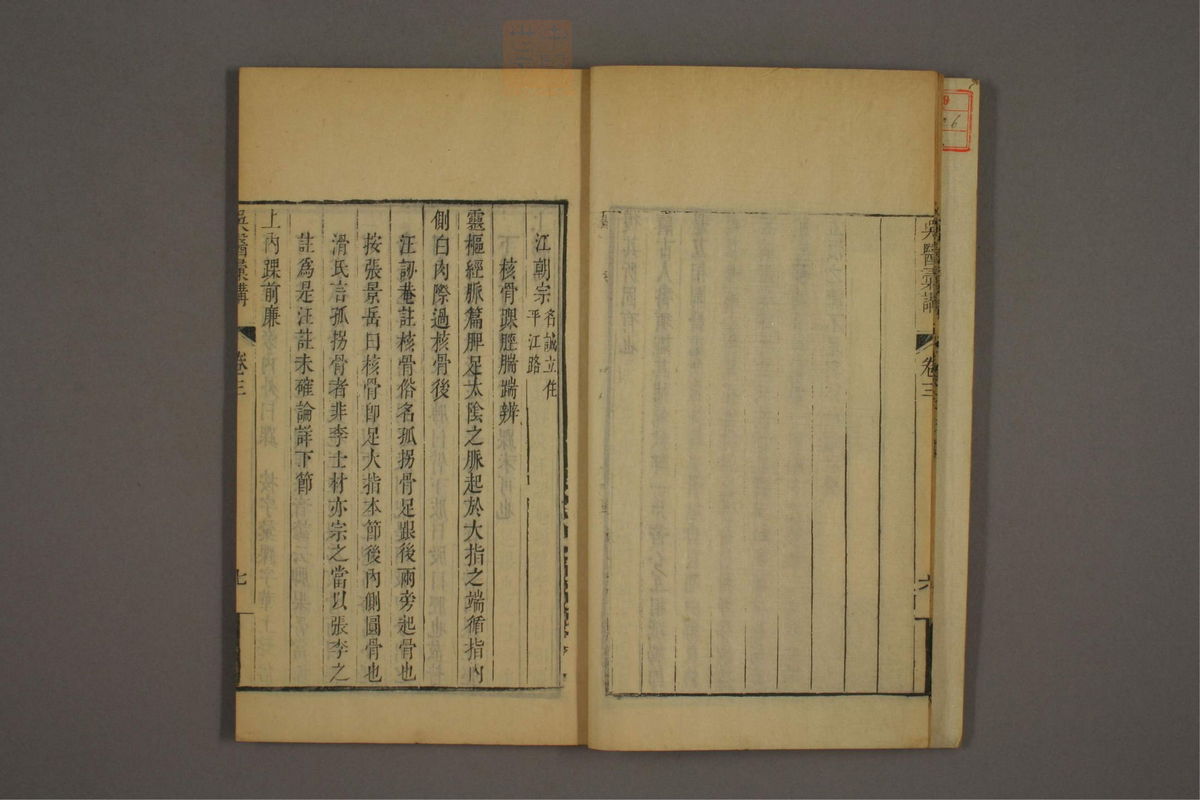 吳醫彙講
卷三
六
江朝宗
名誠立住
平江路
核骨踝脛腨踹辨
靈樞經脈篇脾足太陰之脈起於大指之端循指內
側白肉際過核骨後
汪訒菴註核骨俗名孤拐骨足跟後兩旁起骨也
按張景岳曰核骨即足大指本節後內側圓骨也
滑氏言孤拐骨者非李士材亦宗之當以張李之
註爲是汪註未確論詳下節
上內踝前廉
吳醫彙講
卷三
七